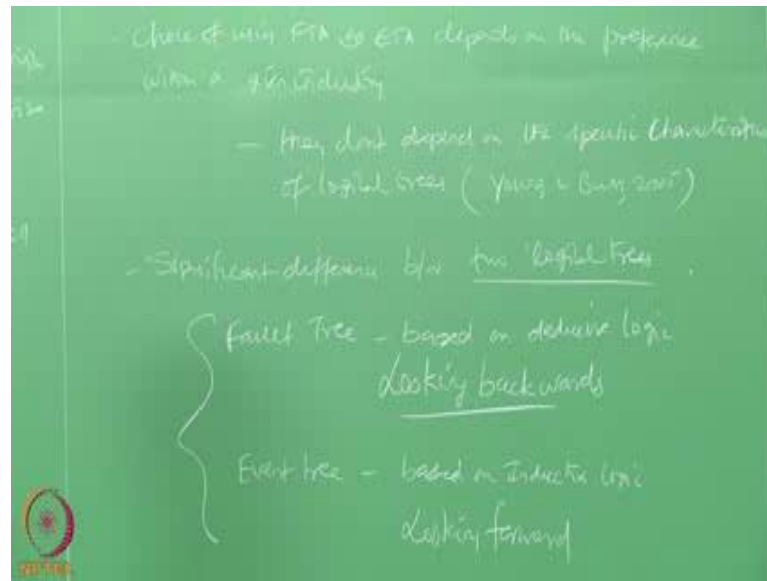 - Choice of using FTA or ETA depends on the preference
within a given industry
- they don't depend on the specific characteristics
of logical trees (Young & Bung 2005)
- Significant difference b/w two logical trees.
Fault Tree - based on deductive logic
Looking backwards
Event tree - based on Inductive logic
Looking forward
NPTEL